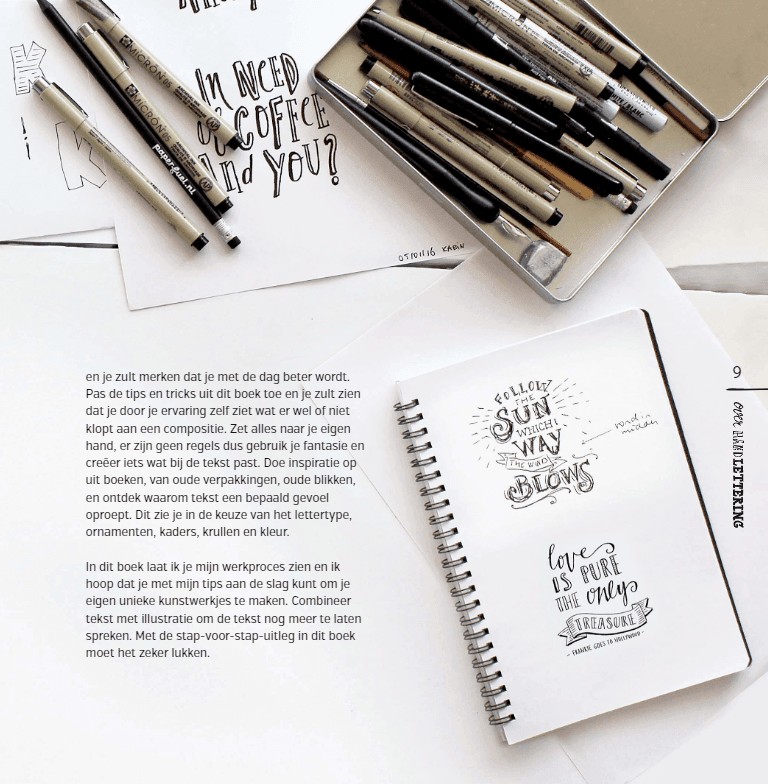 IN NEED
OF COFFEE
And YOU?
MICRON
MICRON
paperfuel.nl
05/01/16 KARIN
en je zult merken dat je met de dag beter wordt.
Pas de tips en tricks uit dit boek toe en je zult zien
dat je door je ervaring zelf ziet wat er wel of niet
klopt aan een compositie. Zet alles naar je eigen
hand, er zijn geen regels dus gebruik je fantasie en
creëer iets wat bij de tekst past. Doe inspiratie op
uit boeken, van oude verpakkingen, oude blikken,
en ontdek waarom tekst een bepaald gevoel
oproept. Dit zie je in de keuze van het lettertype,
ornamenten, kaders, krullen en kleur.
In dit boek laat ik je mijn werkproces zien en ik
hoop dat je met mijn tips aan de slag kunt om je
eigen unieke kunstwerkjes te maken. Combineer
tekst met illustratie om de tekst nog meer te laten
spreken. Met de stap-voor-stap-uitleg in dit boek
moet het zeker lukken.
FOLLOW
THE
SUN
WHICH
WAY
THE WIND
BLOWS
love
IS PURE
THE only
TREASURE
- FRANKIE GOES TO HOLLYWOOD -
9
over HANDLETTERING
K
K